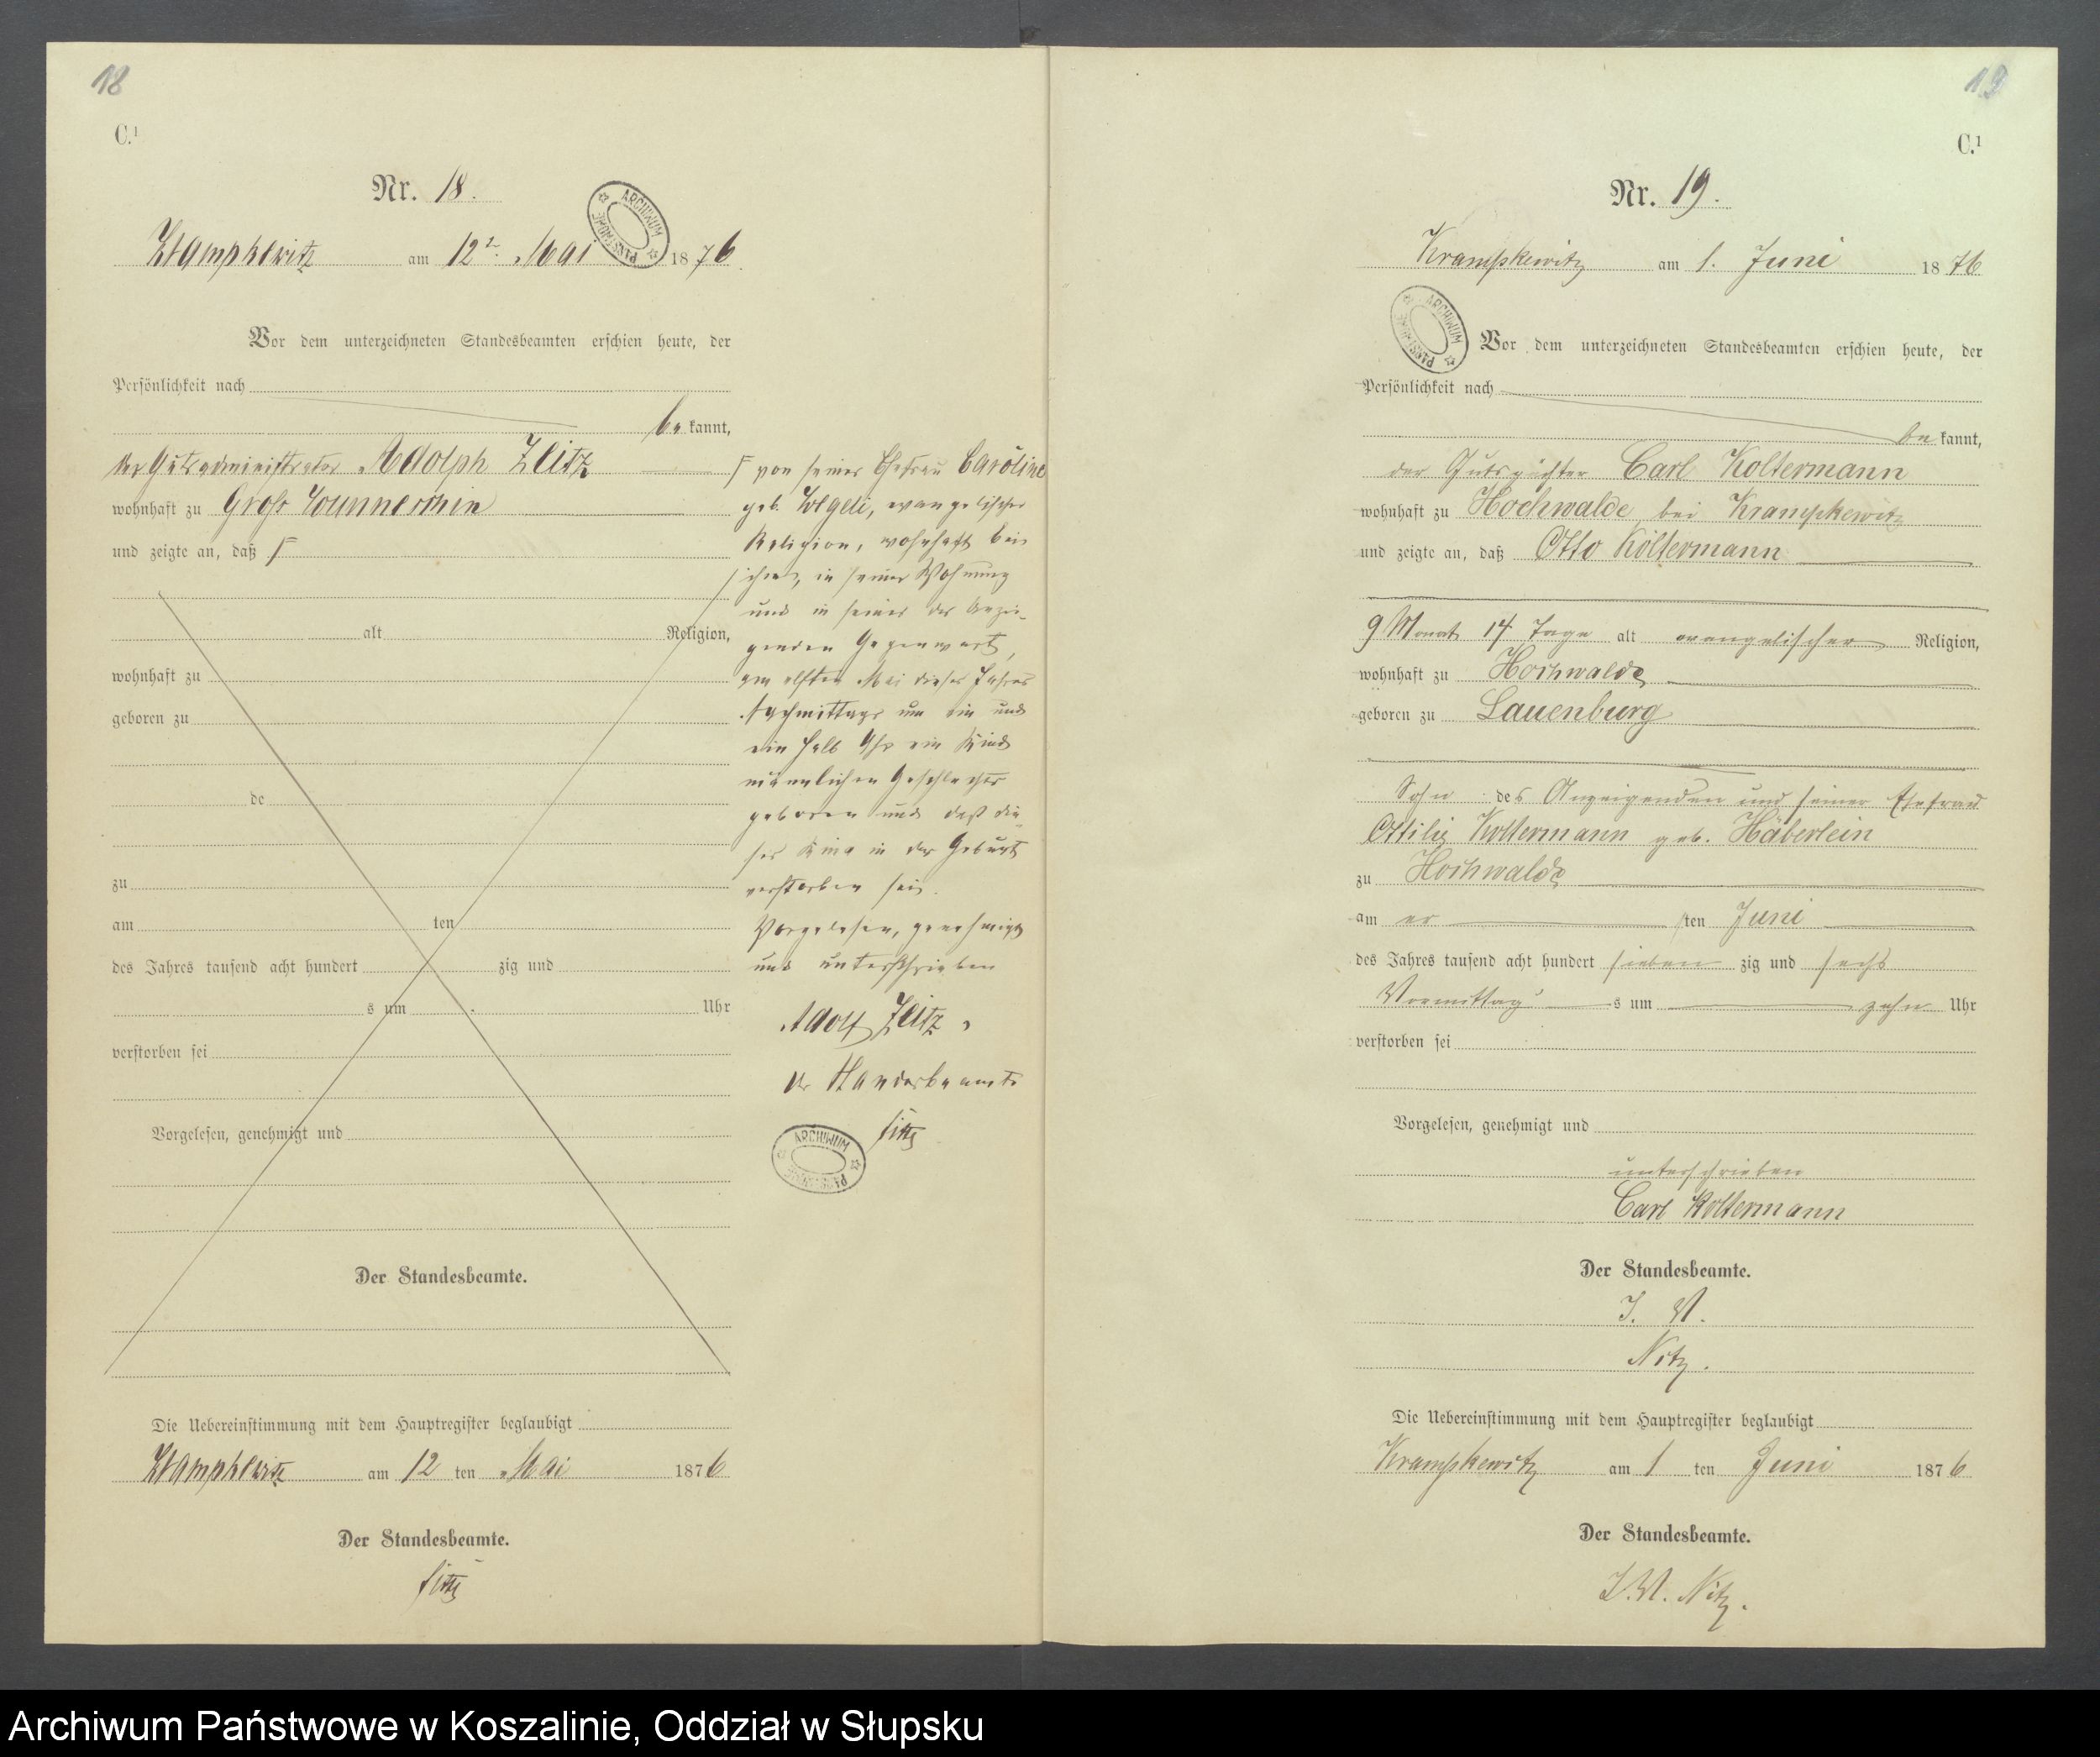 18
C.¹
Nr. 18.
Krampkewitz am 12ᵗ. Mai 1876.
Vor dem unterzeichneten Standesbeamten erschien heute, der
Persönlichkeit nach
bekannt,
der Gutsadministrator Adolph Zeitz
wohnhaft zu Groß
und zeigte an, daß Γ
alt Religion,
wohnhaft zu
geboren zu
de
zu
am ten
des Jahres tausend acht hundert zig und
s um Uhr
verstorben sei
Vorgelesen, genehmigt und
Der Standesbeamte.
Die Uebereinstimmung mit dem Hauptregister beglaubigt
Krampkewitz am 12 ten Mai 1876
Der Standesbeamte.
Γ von seiner Ehefrau Caroline
geb. evangelischer
Religion, wohnhaft bei
ihm, in seiner Wohnung
und in seiner des Anzei-
genden Gegenwart,
am elften Mai dieses Jahres
Nachmittags um ein und
ein halb Uhr ein Kind
männlichen Geschlechts
geboren und daß die-
ses Kind in der Geburt
verstorben sei.
Vorgelesen, genehmigt
und unterschrieben
Adolf Zeitz
Der Standesbeamte
ARCHIWUM PAŃSTWOWE
19
C.¹
Nr. 19.
Krampkewitz am 1. Juni 1876
ARCHIWUM PAŃSTWOWE
Vor dem unterzeichneten Standesbeamten erschien heute, der
Persönlichkeit nach
bekannt,
der Gutspächter Carl Koltermann
wohnhaft zu Hochwalde bei Krampkewitz
und zeigte an, daß Otto Koltermann
9 Monat 14 Tage alt evangelischer Religion,
wohnhaft zu Hochwalde
geboren zu Lauenburg
Sohn des Anzeigenden und seiner Ehefrau
Ottilie Koltermann geb. Häberlein
zu Hochwalde
am er sten Juni
des Jahres tausend acht hundert sieben zig und sechs
Vormittag s um zehn Uhr
verstorben sei
Vorgelesen, genehmigt und
unterschrieben
Carl Koltermann
Der Standesbeamte.
I. V.
Nitz.
Die Uebereinstimmung mit dem Hauptregister beglaubigt
Krampkewitz am 1 ten Juni 1876
Der Standesbeamte.
I. V. Nitz.
Archiwum Państwowe w Koszalinie, Oddział w Słupsku